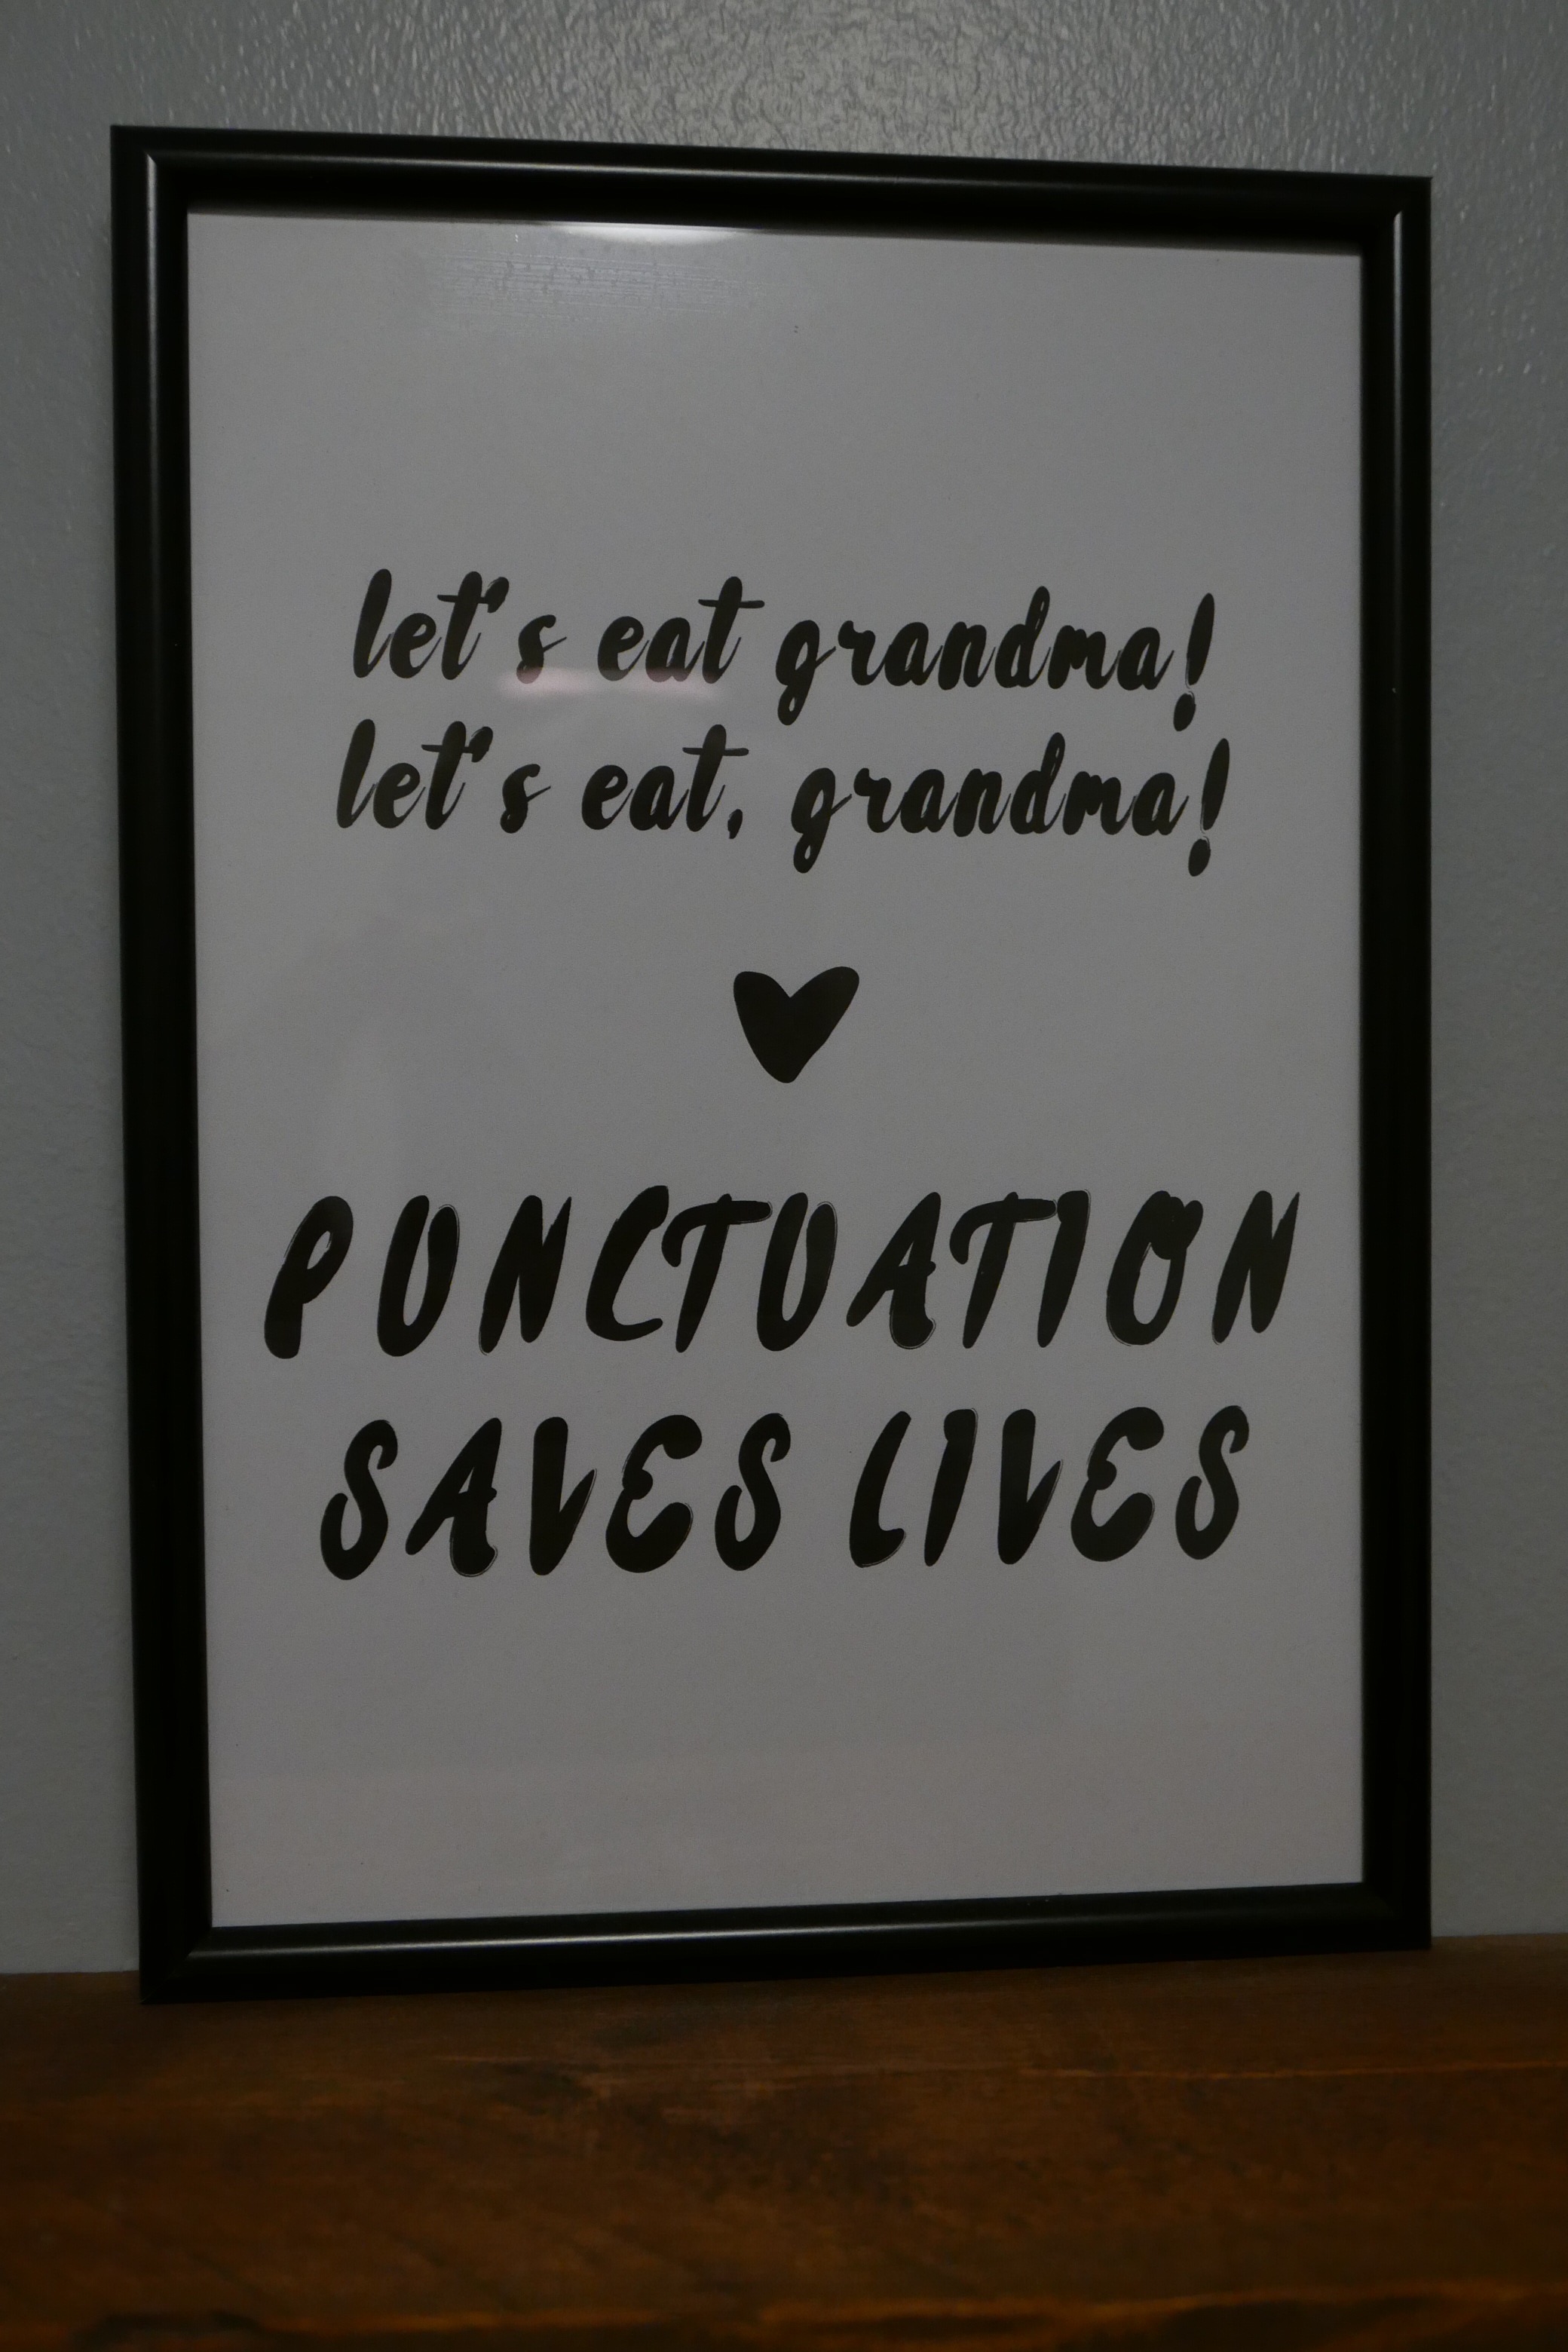 let's eat grandma!
let's eat, grandma!
PUNCTUATION
SAVES LIVES